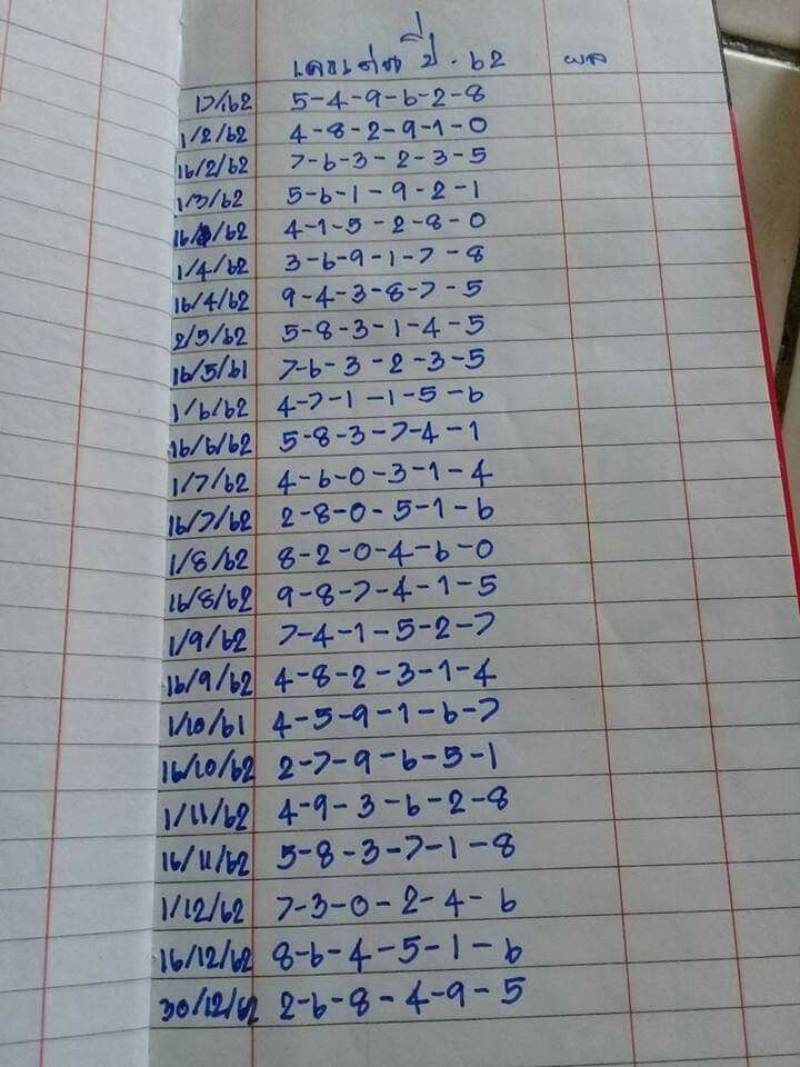 เลขเด่น ปี . 62 ผล
17/1/62 5-4-9-6-2-8
1/2/62 4-8-2-9-1-0
16/2/62 7-6-3-2-3-5
1/3/62 5-6-1-9-2-1
16/3/62 4-1-5-2-8-0
1/4/62 3-6-9-1-7-8
16/4/62 9-4-3-8-7-5
2/5/62 5-8-3-1-4-5
16/5/61 7-6-3-2-3-5
1/6/62 4-7-1-1-5-6
16/6/62 5-8-3-7-4-1
1/7/62 4-6-0-3-1-4
16/7/62 2-8-0-5-1-6
1/8/62 8-2-0-4-6-0
16/8/62 9-8-7-4-1-5
1/9/62 7-4-1-5-2-7
16/9/62 4-8-2-3-1-4
1/10/61 4-5-9-1-6-7
16/10/62 2-7-9-6-5-1
1/11/62 4-9-3-6-2-8
16/11/62 5-8-3-7-1-8
1/12/62 7-3-0-2-4-6
16/12/62 8-6-4-5-1-6
30/12/62 2-6-8-4-9-5